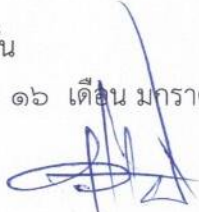 ๑๖ เดือน มกรา